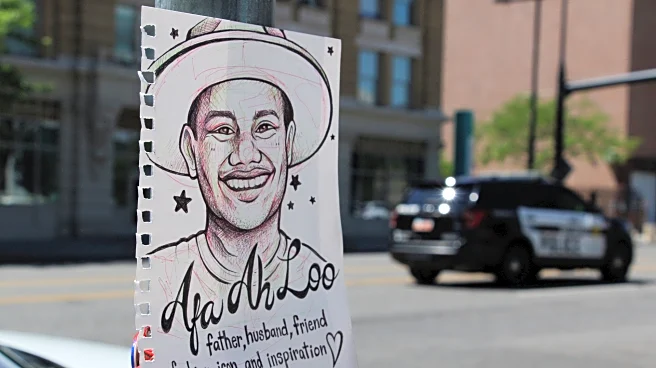 Afa Ah Loo
father, husband, friend
and inspiration
POLICE